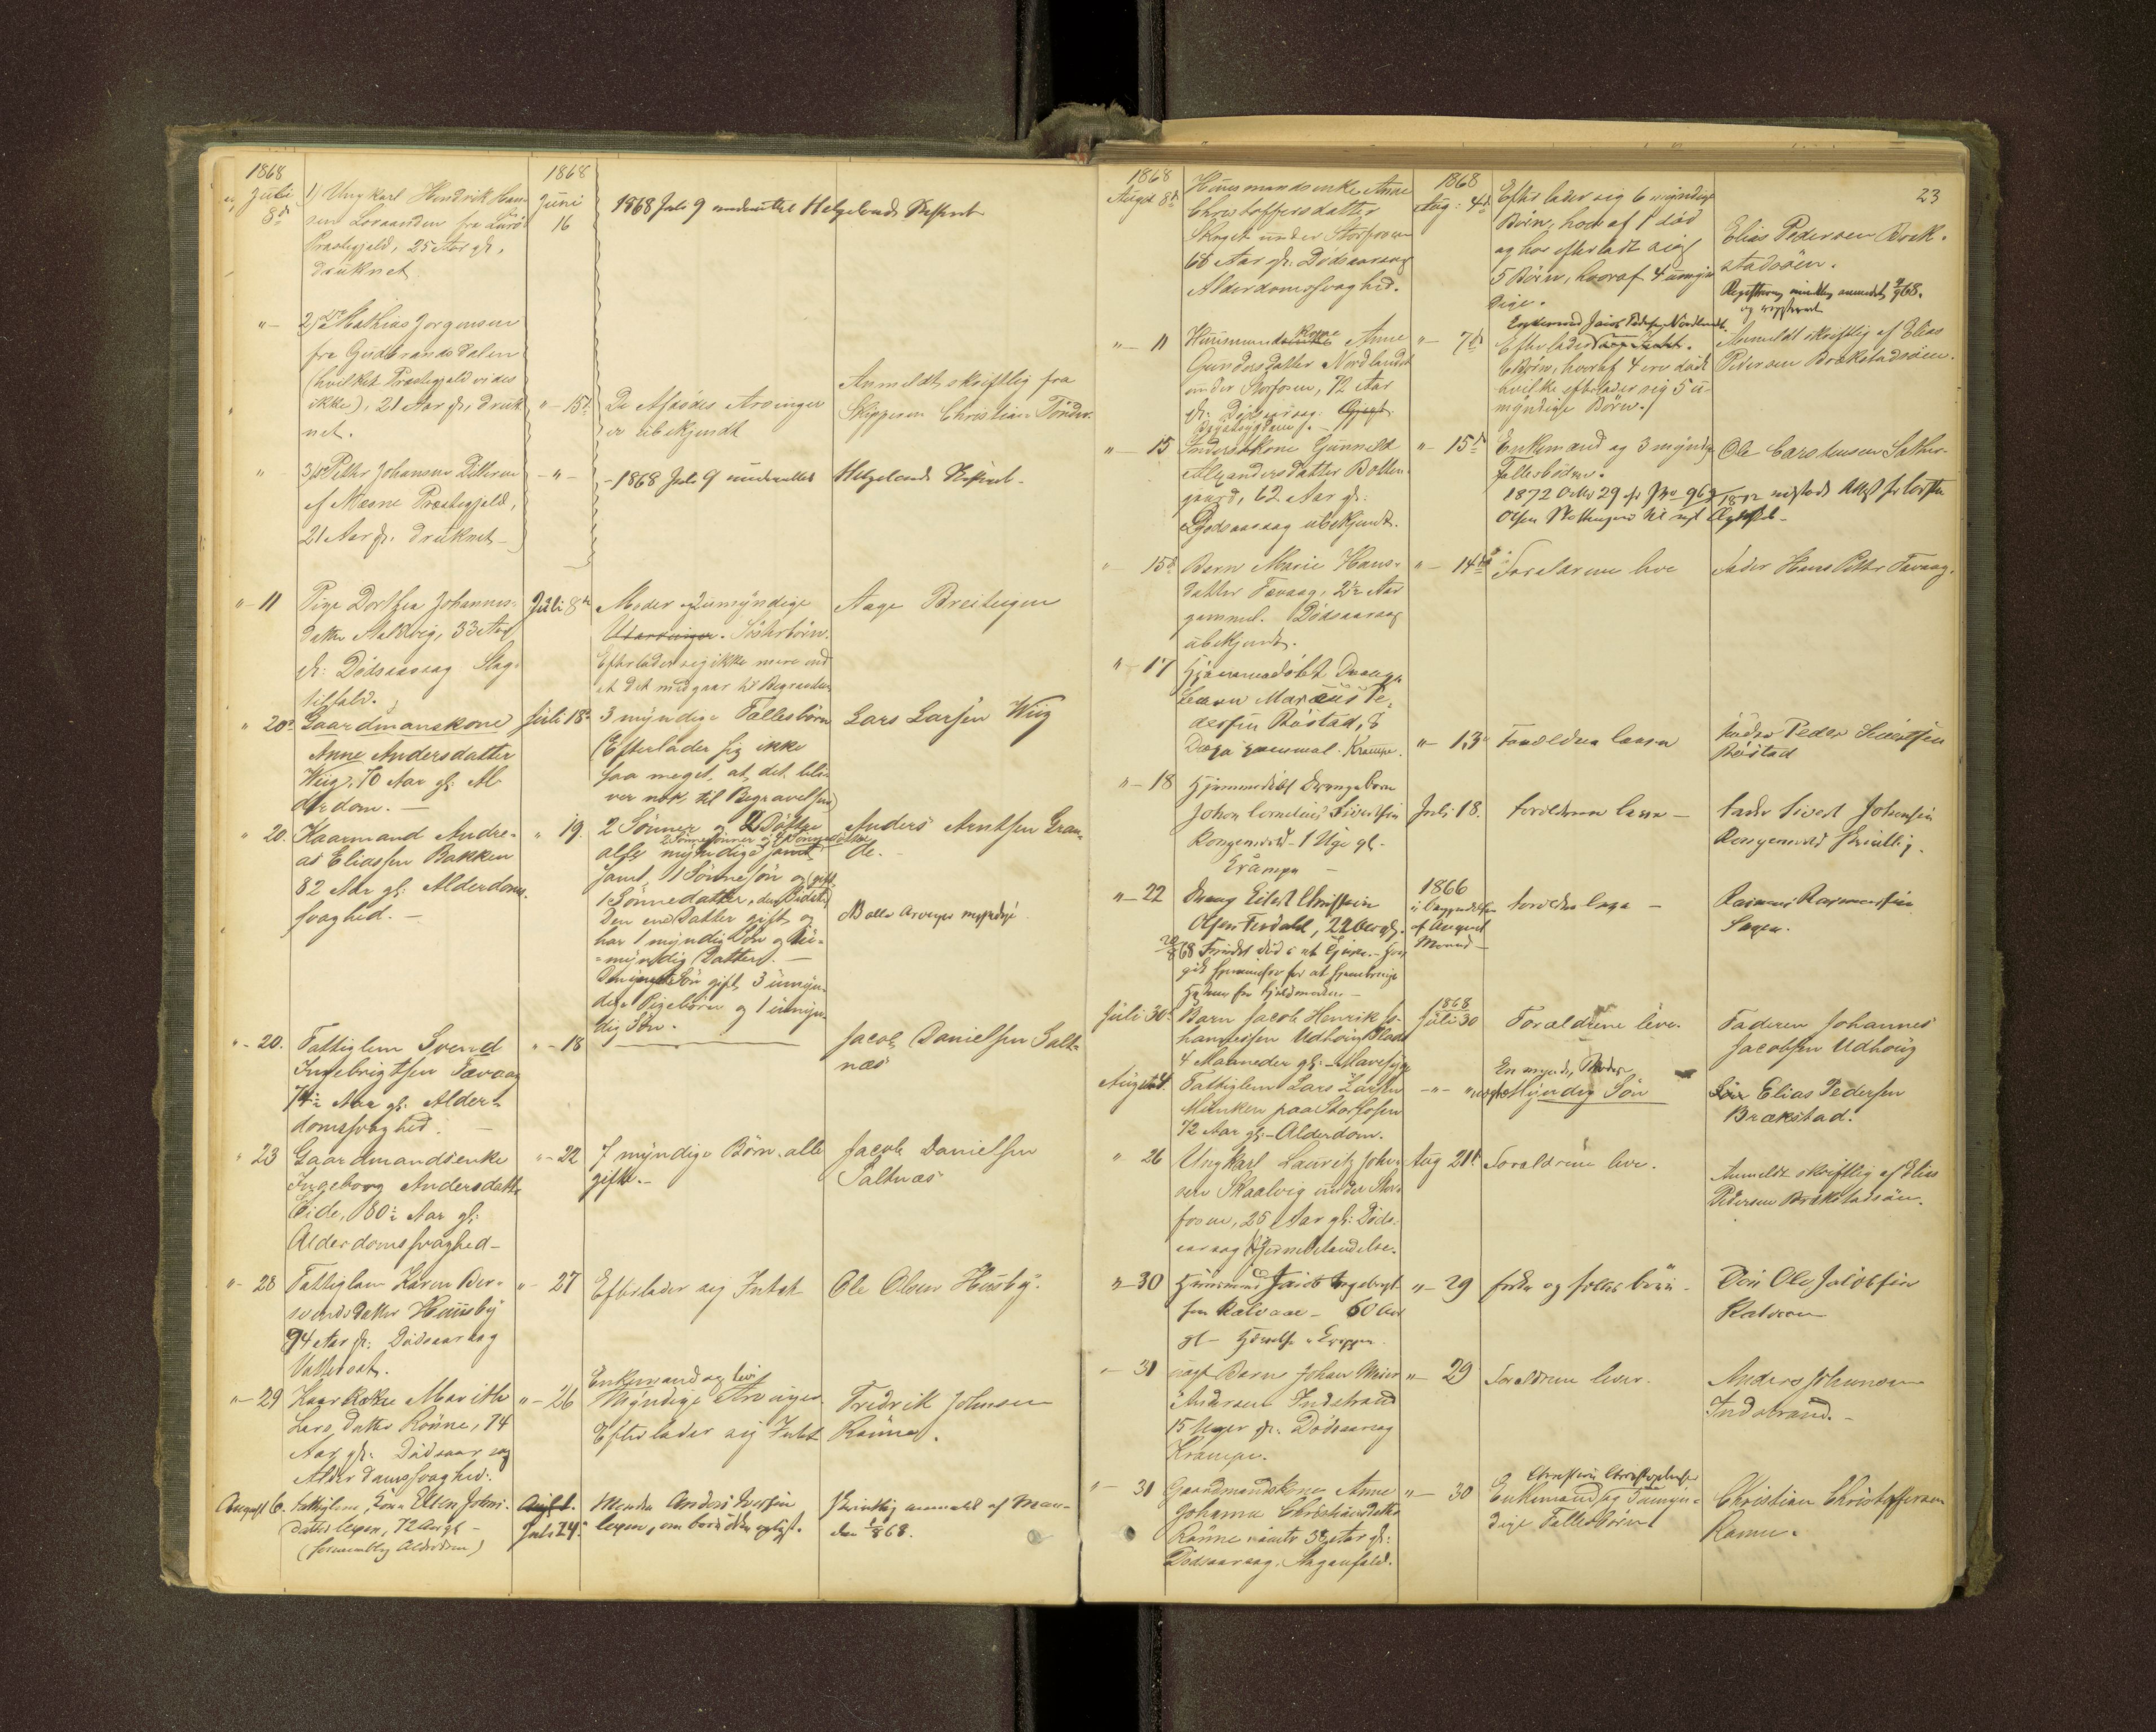 1868
Juli 8de
1) Ungkarl Hendrik Han-
sen Lovaanden fra Lurö
Præstegjeld, 25 Aar gl.
druknet
1868
Juni
16
1868 Juli 9 underrettet Helgelands Skifteret
"- 2) do Mathias Jorgensen
fra Gudbrandsdalen
(hvilket Præstegjeld vides
ikke), 21 Aar gl. druk
net.
"- 15de
De Afdødes Arvinger
er ubekjendt
Anmeldt skriftlig fra
Skipperen Christian Tönder
" 3) do Petter Johansen Ditterøen
af Næsne Præstegjeld,
21 Aar gl. druknet
-"-
- 1868 Juli 9 underrettet Helgelands Skifteret -
"- 11
Pige Dorthea Johannes-
datter Maldvig, 33 Aar
gl: Dödsaarsag Slag-
tilfald.
Juli 8de
Moder og umyndige
Udarvinger. Söskerbörn.
Efterlader sig ikke mere end
at det medgaar til Begravelsen
Aage Breiteigen
" 20de
Gaardmanskone
Anne Andersdatter
Wiig, 70 Aar gl: Al-
derdom. -
Juli 18de
3 myndige Fallesbörn
(Efterlader sig ikke
saa meget, at det bli-
ver nok til Begravelsen)
Lars Larsen Wiig
" 20.
Kaarmand Andre-
as Eliassen Bakken
82 Aar gl: Alderdoms
svaghed. -
" 19.
2 Sönner og 2 Döttre
2 Sönnesönner og 4 Sönnedöttre
alle myndige samt
samt 1 Sönnesön og (gift
1 Sönnedatter, den
Den ene Datter gift og
har 1 myndig Sön og 1 u-
myndig Datter. -
Den yngste Sön gift, 3 umyn-
dige Pigebörn og 1 umyn-
dig Sön.
Anders Arntsen Gran-
de. -
NB alle Arvinger myndige
"- 20.
Fattiglem Svend
Ingebrigtsen Tævaag
74 1/2 Aar gl: Alder-
domssvaghed. -
"- 18
Jacob Danielsen Salt-
næs
" 23
Gaardmandsenke
Ingeborg Andersdatter
Eide, 80 1/2 Aar gl:
Alderdomssvaghed -
"- 22
7 myndige Börn, alle
gifte. -
Jacob Danielsen
Saltnæs
"- 28
Fattiglem Karen Ber-
svendsdatter Huusby
94 Aar gl: Dödsaarsag
Vattersot.
"- 27
Efterlader sig Intet
Ole Olsen Huusby.
"- 29
Kaarkone Marith
Larsdatter Rönne, 74
Aar gl: Dödsaarsag
Alderdomssvaghed.
"- 26
Enkemand og liv
Myndige Arvinger
Efterlader sig Intet
Fredrik Johnsen
Rönne.
August 6.
Fattiglem, Kone Ellen Johns-
datter Leegen, 72 Aar gl -
(formentlig Alderdom)
Augst.
Juli 24.
Manden Anders Iversen
Leegen, om börn ikke oplyst.
Skriftlig anmeldt af Man-
den 1/8 68.
23
1868
August 8de
Huusmandsenke Anne
Christoffersdatter
Skaget under Storfosen
68 Aar gl. Dödsaarsag
Alderdomssvaghed.
1868
Aug: 4de
Efterlader sig 6 myndige
Börn, hvoraf 1 död
og har efterladt sig
5 Börn, hvoraf 4 umyn
dige.
Elias Pedersen Brek-
stadsöen.
"- 11
Huusmandskone Anne
Gundersdatter Nordlandet
under Storfosen, 72 Aar
gl: Dödsaarsag
Brystsygdom. -
"- 7de
Enkemand Jacob Peders. Nordlandet
Efterlader sig Intet.
6 Börn, hvoraf 4 ere døde
hvilke efterlader sig 5 u-
myndige Börn./
Anmeldt skriftlig af Elias
Pedersen Brekstadsöen.
"- 15
Inderstkone Gunnild
Alexandersdatter Botten-
gaard, 62 Aar gl:
Dödsaarsag ubekjendt.
"- 15de
Enkemand og 3 myndig
Fallesbörn.
Ole Carstensen Sæther-
" 15de
Barn Marie Hans-
datter Tævaag, 2 1/2 Aar
gammel. Dödsaarsag
ubekjendt.
"- 14de
Foraldrene leve
Fader Hans Petter Tævaag.
"- 17
Hjemmedöbt Drenge
Barn Marcus Pe-
dersen Böstad, 8
Dage gammel. Krampe.
"- 13de
Forældrene leever
Fader Peder Sivertsen
Böstad
"- 18
Hjemmedöbt Drengebarn
Johan Cornelius Sivertsen
Rongensvæd - 1 Uge gl -
Krampe -
Juli 18.
Forældrene leve -
Fader Sivert Johansen
Rongensvæd Skriftlig.
"- 22
Dreng Eilert Christian
Olsen Ferdahl, 22 Aar gl.
1866
i Begyndelsen
af August
Maaned -
Forældre leve -
Rasmus Rasmussen
Juli 30te
Barn Jacob Henrik Jo-
hannessen Udhoug
4 Maaneder gl: - Mavesyge
1868
Juli 30
Foraldrene leve.
Faderen Johannes
Jacobsen Udhoug
August 4.
Fattiglem Lars Larsen
Munken paa Storfosen
72 Aar gl: - Alderdom.
En myndig Broder
Myndig Sön
Elias Pedersen
Brækstad.
" 26
Ungkarl Lauritz John-
sen Skaalvig under Stor-
fosen, 25 Aar gl: Döds-
aarsag Hjernebetændelse.
Aug 21de
Foraldrene leve.
Anmeldt skriftlig af Elias
Pedersen Brekstadsöen.
"- 30
Huusmand Jacob Ingebrigt-
sen Kalvaae - 60 Aar
gl -
"- 29
Enke og felles börn -
Sön Ole Jacobsen
Kalvaae
"- 31
Barn Johan Meier
Andersen Indstrand
15 Uger gl: Dödsaarsag
Krampe.
"- 29
Foraldrene lever.
Anders Johansen
Indstrand. -
"- 31
Gaardmandskone Anne
Johanna Christiansdatter
Rönne 38 Aar gl:
Dödsaarsag,
"- 30
Christian Christophersen
Enkemand og umyn-
dige Fellesbörn
Christian Christoffersen
Rönne.